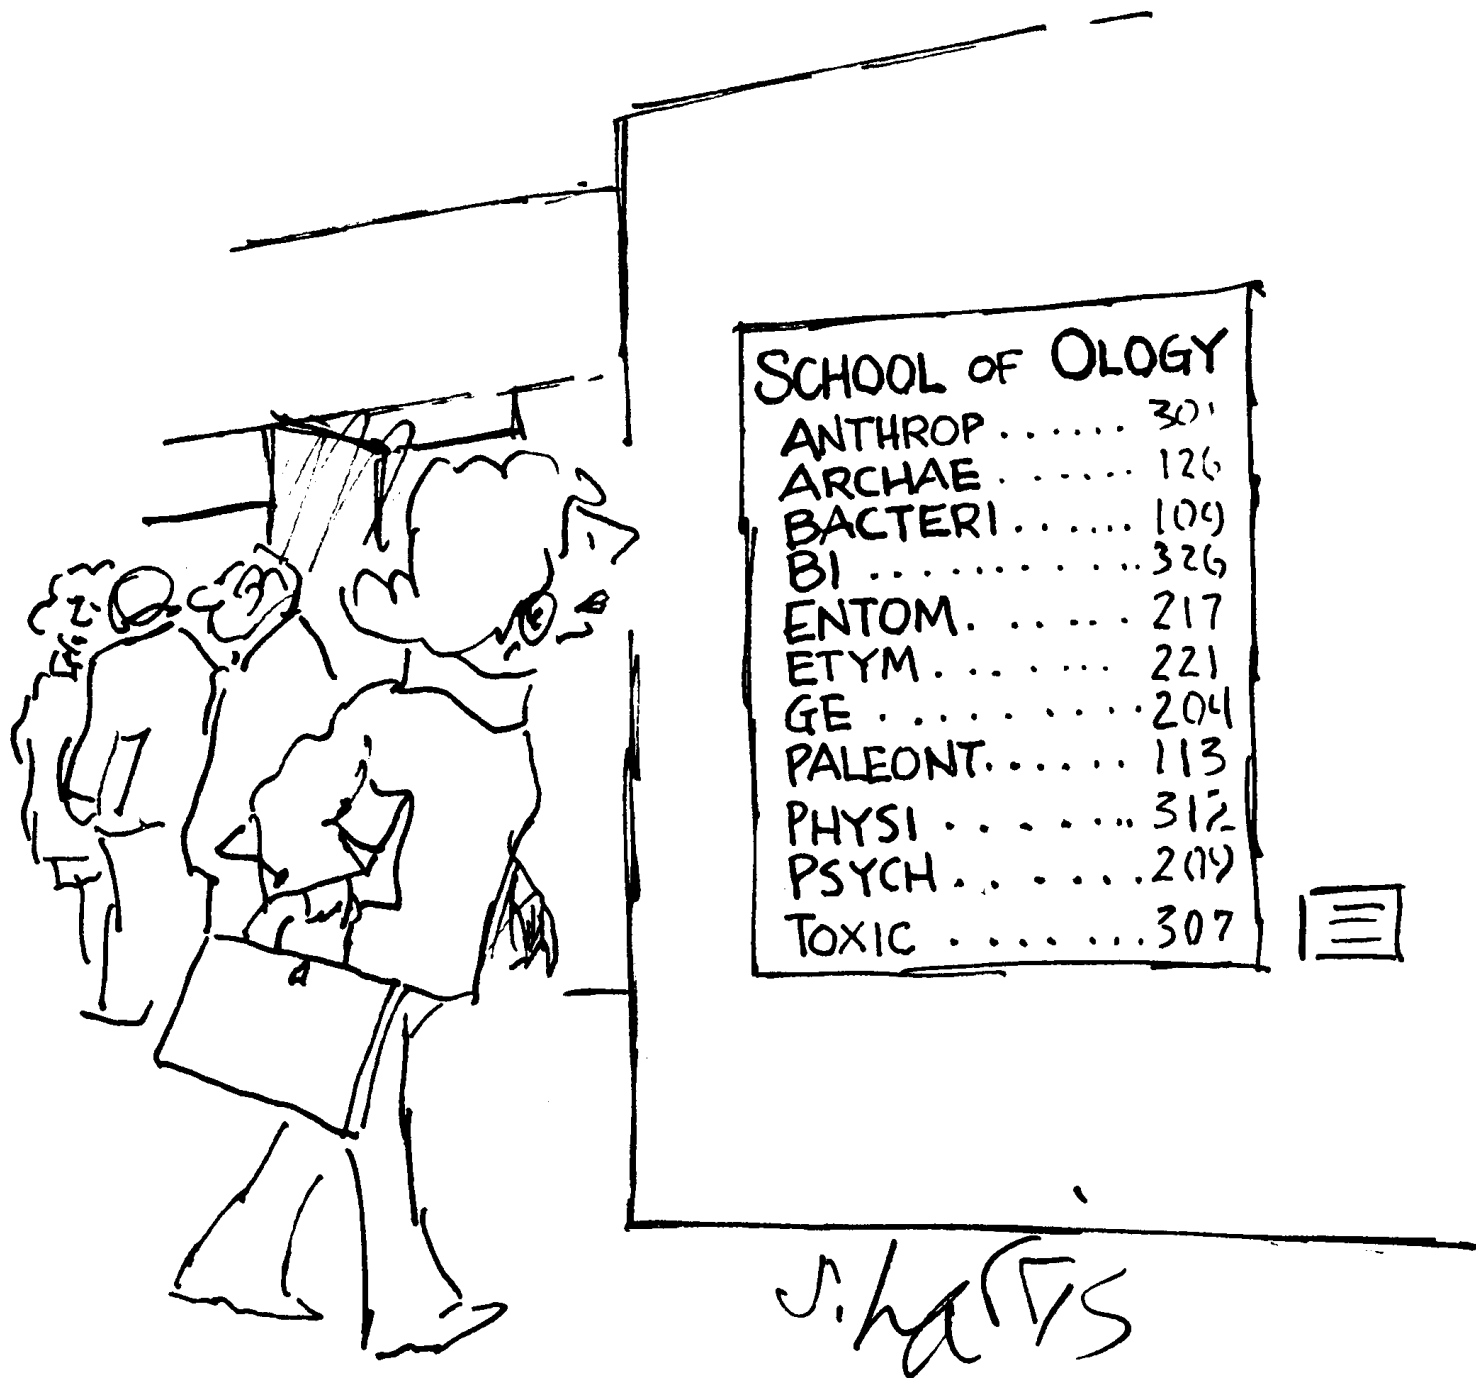 SCHOOL OF OLOGY
ANTHROP ...... 301
ARCHAE ...... 126
BACTERI ...... 109
BI ........... 326
ENTOM ...... 217
ETYM ....... 221
GE ......... 204
PALEONT ...... 113
PHYSI ....... 312
PSYCH ...... 209
TOXIC ....... 307
S. harris